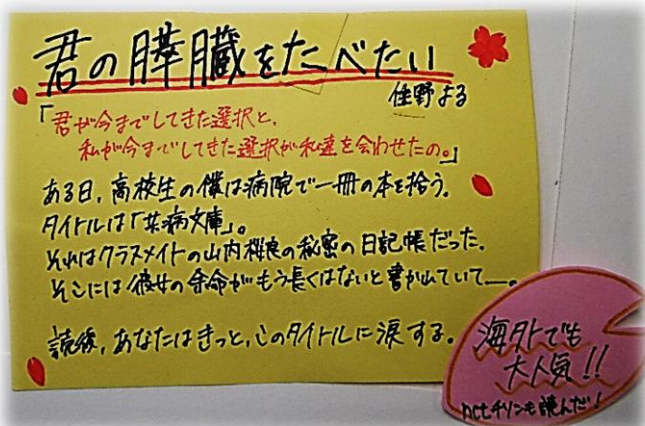 君の膵臓をたべたい
住野よる
「君が今までしてきた選択と、
私が今までしてきた選択が私達を会わせたの。」
ある日、高校生の僕は病院で一冊の本を拾う。
タイトルは「共病文庫」。
それはクラスメイトの山内桜良の秘密の日記帳だった。
そこには彼女の余命がもう長くはないと書かれていて―。
読後、あなたはきっと、このタイトルに涙する。
海外でも
大人気!!
nctチソンも読んだ!